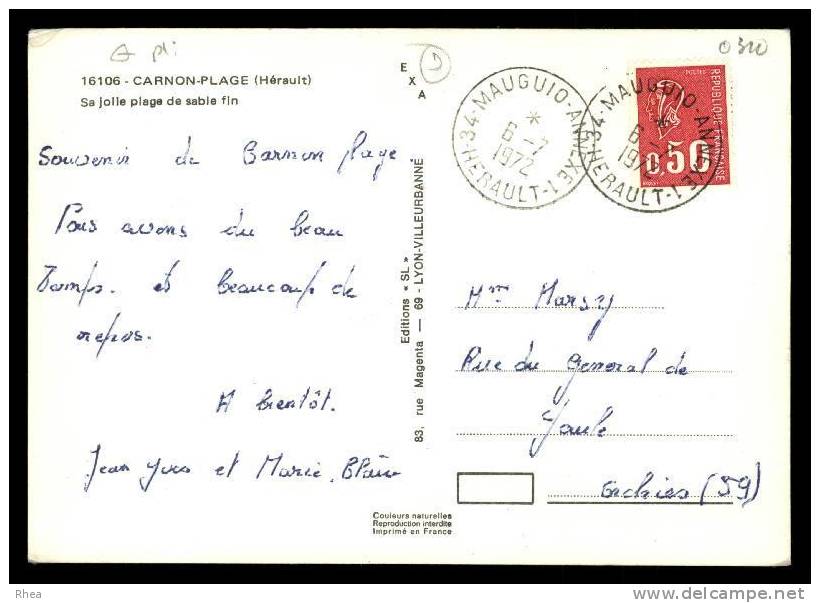 A pli
0320
16106 - CARNON-PLAGE (Hérault)
Sa jolie plage de sable fin
E
X
A
Souvenir de Carnon plage
Nous avons du beau
Temps. et beaucoup de
repos.
A bientôt.
Jean Yves et Marie. Claire
Editions « SL »
83, rue Magenta — 69 - LYON-VILLEURBANNÉ
34-MAUGUIO-ANNEXE 1-HERAULT-
*
6-7
1972
34-MAUGUIO-ANNEXE 1-HERAULT-
*
6-7
1972
POSTES
REPUBLIQUE FRANÇAISE
0,50
Mme Marsy
Rue du General de
Gaule
Orchies (59)
Couleurs naturelles
Reproduction interdite
Imprimé en France
Rhea
delcampe.net